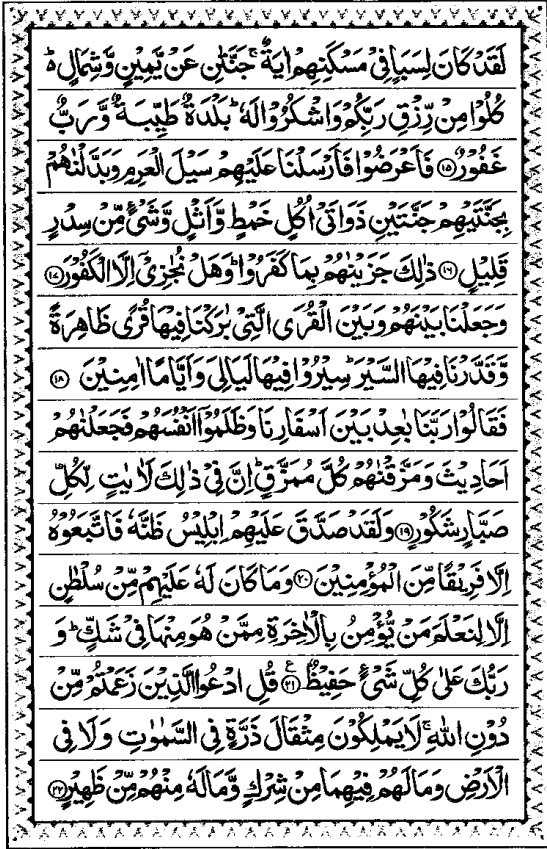 لَقَدْ كَانَ لِسَبَاٍ فِیْ مَسْكَنِهِمْ اٰیَةٌ ۚ جَنَّتٰنِ عَنْ یَّمِیْنٍ وَّشِمَالٍ ؕ۬
كُلُوْا مِنْ رِّزْقِ رَبِّكُمْ وَاشْكُرُوْا لَهٗ ؕ بَلْدَةٌ طَیِّبَةٌ وَّرَبٌّ
غَفُوْرٌ ۝۱۵ فَاَعْرَضُوْا فَاَرْسَلْنَا عَلَیْهِمْ سَیْلَ الْعَرِمِ وَبَدَّلْنٰهُمْ
بِجَنَّتَیْهِمْ جَنَّتَیْنِ ذَوَاتَیْ اُكُلٍ خَمْطٍ وَّاَثْلٍ وَّشَیْءٍ مِّنْ سِدْرٍ
قَلِیْلٍ ۝۱۶ ذٰلِكَ جَزَیْنٰهُمْ بِمَا كَفَرُوْا ؕ وَهَلْ نُجٰزِیْۤ اِلَّا الْكَفُوْرَ ۝۱۷
وَجَعَلْنَا بَیْنَهُمْ وَبَیْنَ الْقُرَی الَّتِیْ بٰرَكْنَا فِیْهَا قُرًی ظَاهِرَةً
وَّقَدَّرْنَا فِیْهَا السَّیْرَ ؕ سِیْرُوْا فِیْهَا لَیَالِیَ وَاَیَّامًا اٰمِنِیْنَ ۝۱۸
فَقَالُوْا رَبَّنَا بٰعِدْ بَیْنَ اَسْفَارِنَا وَظَلَمُوْۤا اَنْفُسَهُمْ فَجَعَلْنٰهُمْ
اَحَادِیْثَ وَمَزَّقْنٰهُمْ كُلَّ مُمَزَّقٍ ؕ اِنَّ فِیْ ذٰلِكَ لَاٰیٰتٍ لِّكُلِّ
صَبَّارٍ شَكُوْرٍ ۝۱۹ وَلَقَدْ صَدَّقَ عَلَیْهِمْ اِبْلِیْسُ ظَنَّهٗ فَاتَّبَعُوْهُ
اِلَّا فَرِیْقًا مِّنَ الْمُؤْمِنِیْنَ ۝۲۰ وَمَا كَانَ لَهٗ عَلَیْهِمْ مِّنْ سُلْطٰنٍ
اِلَّا لِنَعْلَمَ مَنْ یُّؤْمِنُ بِالْاٰخِرَةِ مِمَّنْ هُوَ مِنْهَا فِیْ شَكٍّ ؕ وَ
رَبُّكَ عَلٰی كُلِّ شَیْءٍ حَفِیْظٌ ۝۲۱ ع قُلِ ادْعُوا الَّذِیْنَ زَعَمْتُمْ مِّنْ
دُوْنِ اللّٰهِ ۚ لَا یَمْلِكُوْنَ مِثْقَالَ ذَرَّةٍ فِی السَّمٰوٰتِ وَلَا فِی
الْاَرْضِ وَمَا لَهُمْ فِیْهِمَا مِنْ شِرْكٍ وَّمَا لَهٗ مِنْهُمْ مِّنْ ظَهِیْرٍ ۝۲۲